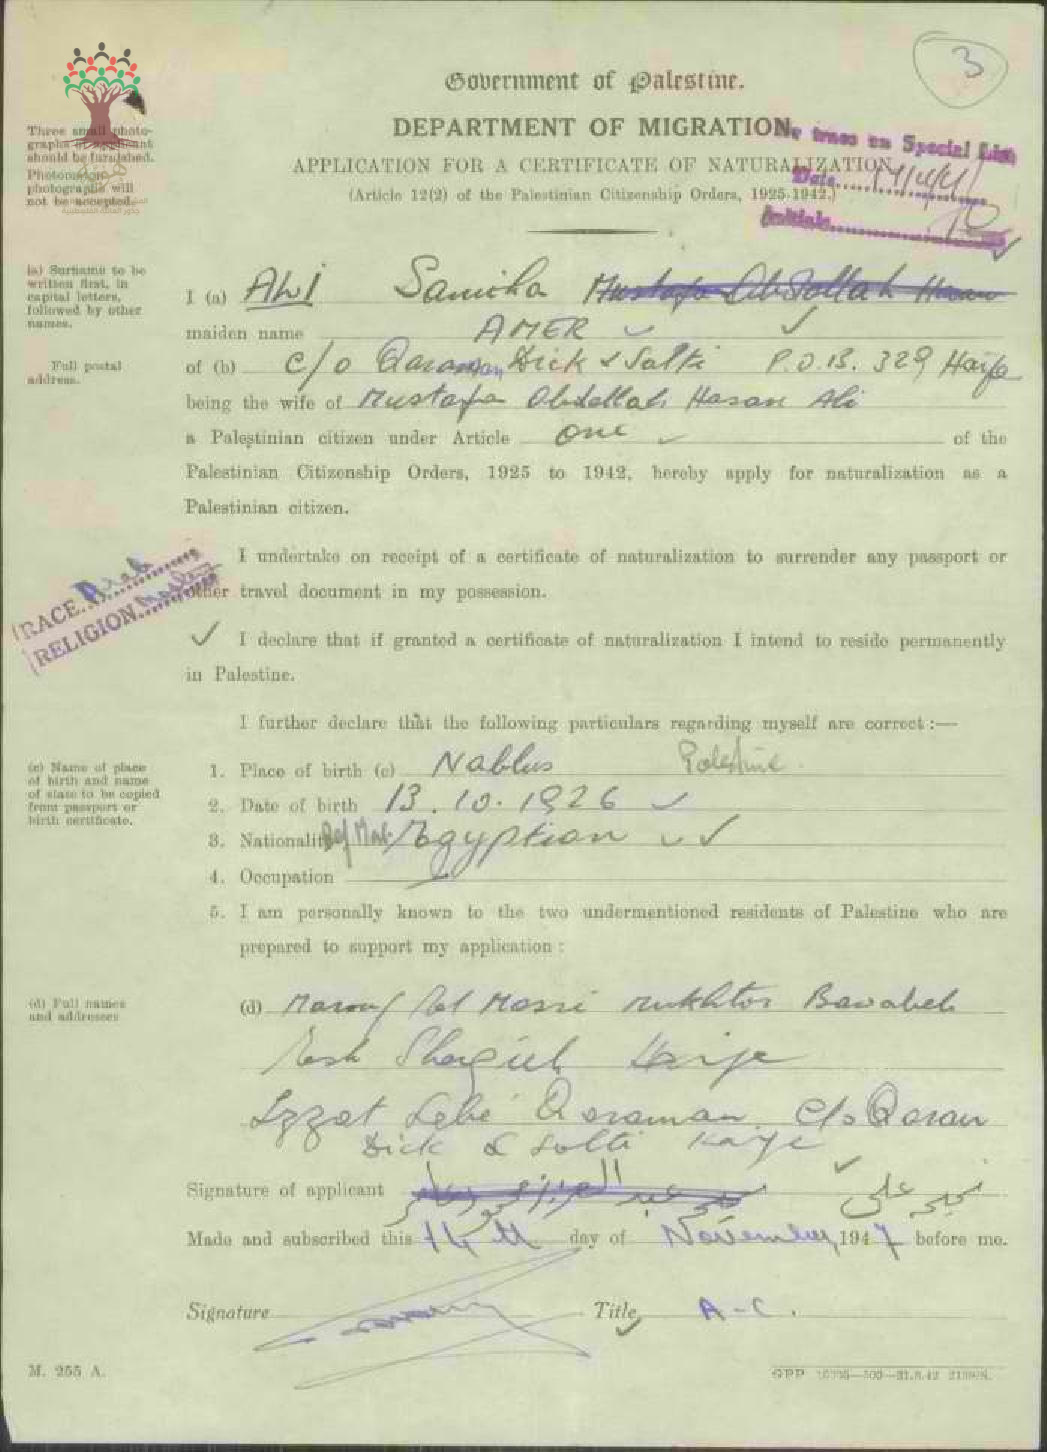 3
Government of Palestine.
DEPARTMENT OF MIGRATION
APPLICATION FOR A CERTIFICATE OF NATURALIZATION
(Article 12(2) of the Palestinian Citizenship Orders, 1925-1942.)
No trace on Special List
Date
Initials
Three small photo-
graphs of applicant
should be furnished.
Photomaton
photographs will
not be accepted.
(a) Surname to be
written first, in
capital letters,
followed by other
names.
I (a) ALI Samiha Mustafa Abdallah Hasan
maiden name AMER
Full postal
address.
of (b) c/o Qaraman Dick & Salti P.O.B. 329 Haifa
being the wife of Mustafa Abdallah Hasan Ali
a Palestinian citizen under Article one of the
Palestinian Citizenship Orders, 1925 to 1942, hereby apply for naturalization as a
Palestinian citizen.
I undertake on receipt of a certificate of naturalization to surrender any passport or
other travel document in my possession.
RACE Arab
RELIGION
I declare that if granted a certificate of naturalization I intend to reside permanently
in Palestine.
I further declare that the following particulars regarding myself are correct :—
(c) Name of place
of birth and name
of state to be copied
from passport or
birth certificate.
1. Place of birth (c) Nablus Palestine
2. Date of birth 13.10.1926
3. Nationality Bef Mar: Egyptian
4. Occupation
5. I am personally known to the two undermentioned residents of Palestine who are
prepared to support my application :
(d) Full names
and addresses
(d) El Masri mukhtar Bawabeh
Haifa
Izzat Qaraman c/o Qaraman
Dick & Salti Haifa
Signature of applicant علي
Made and subscribed this 14th day of November, 1947 before me.
Signature Title A-C.
M. 255 A.
GPP